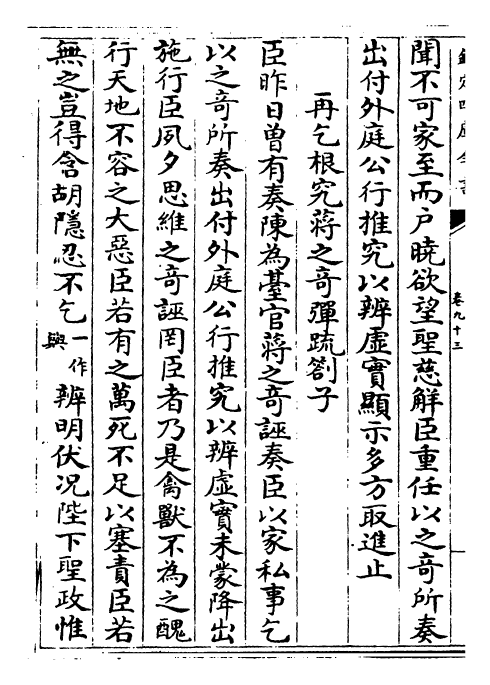 欽定四庫全書
卷九十三
聞不可家至而户曉欲望聖慈解臣重任以之竒所奏
出付外庭公行推究以辨虛實顯示多方取進止
再乞根究蔣之竒彈疏劄子
臣昨日曾有奏陳為臺官蔣之竒誣奏臣以家私事乞
以之竒所奏出付外庭公行推究以辨虛實未蒙降出
施行臣夙夕思維之竒誣罔臣者乃是禽獸不為之醜
行天地不容之大惡臣若有之萬死不足以塞責臣若
無之豈得含胡隱忍不乞一作與辨明伏况陛下聖政惟